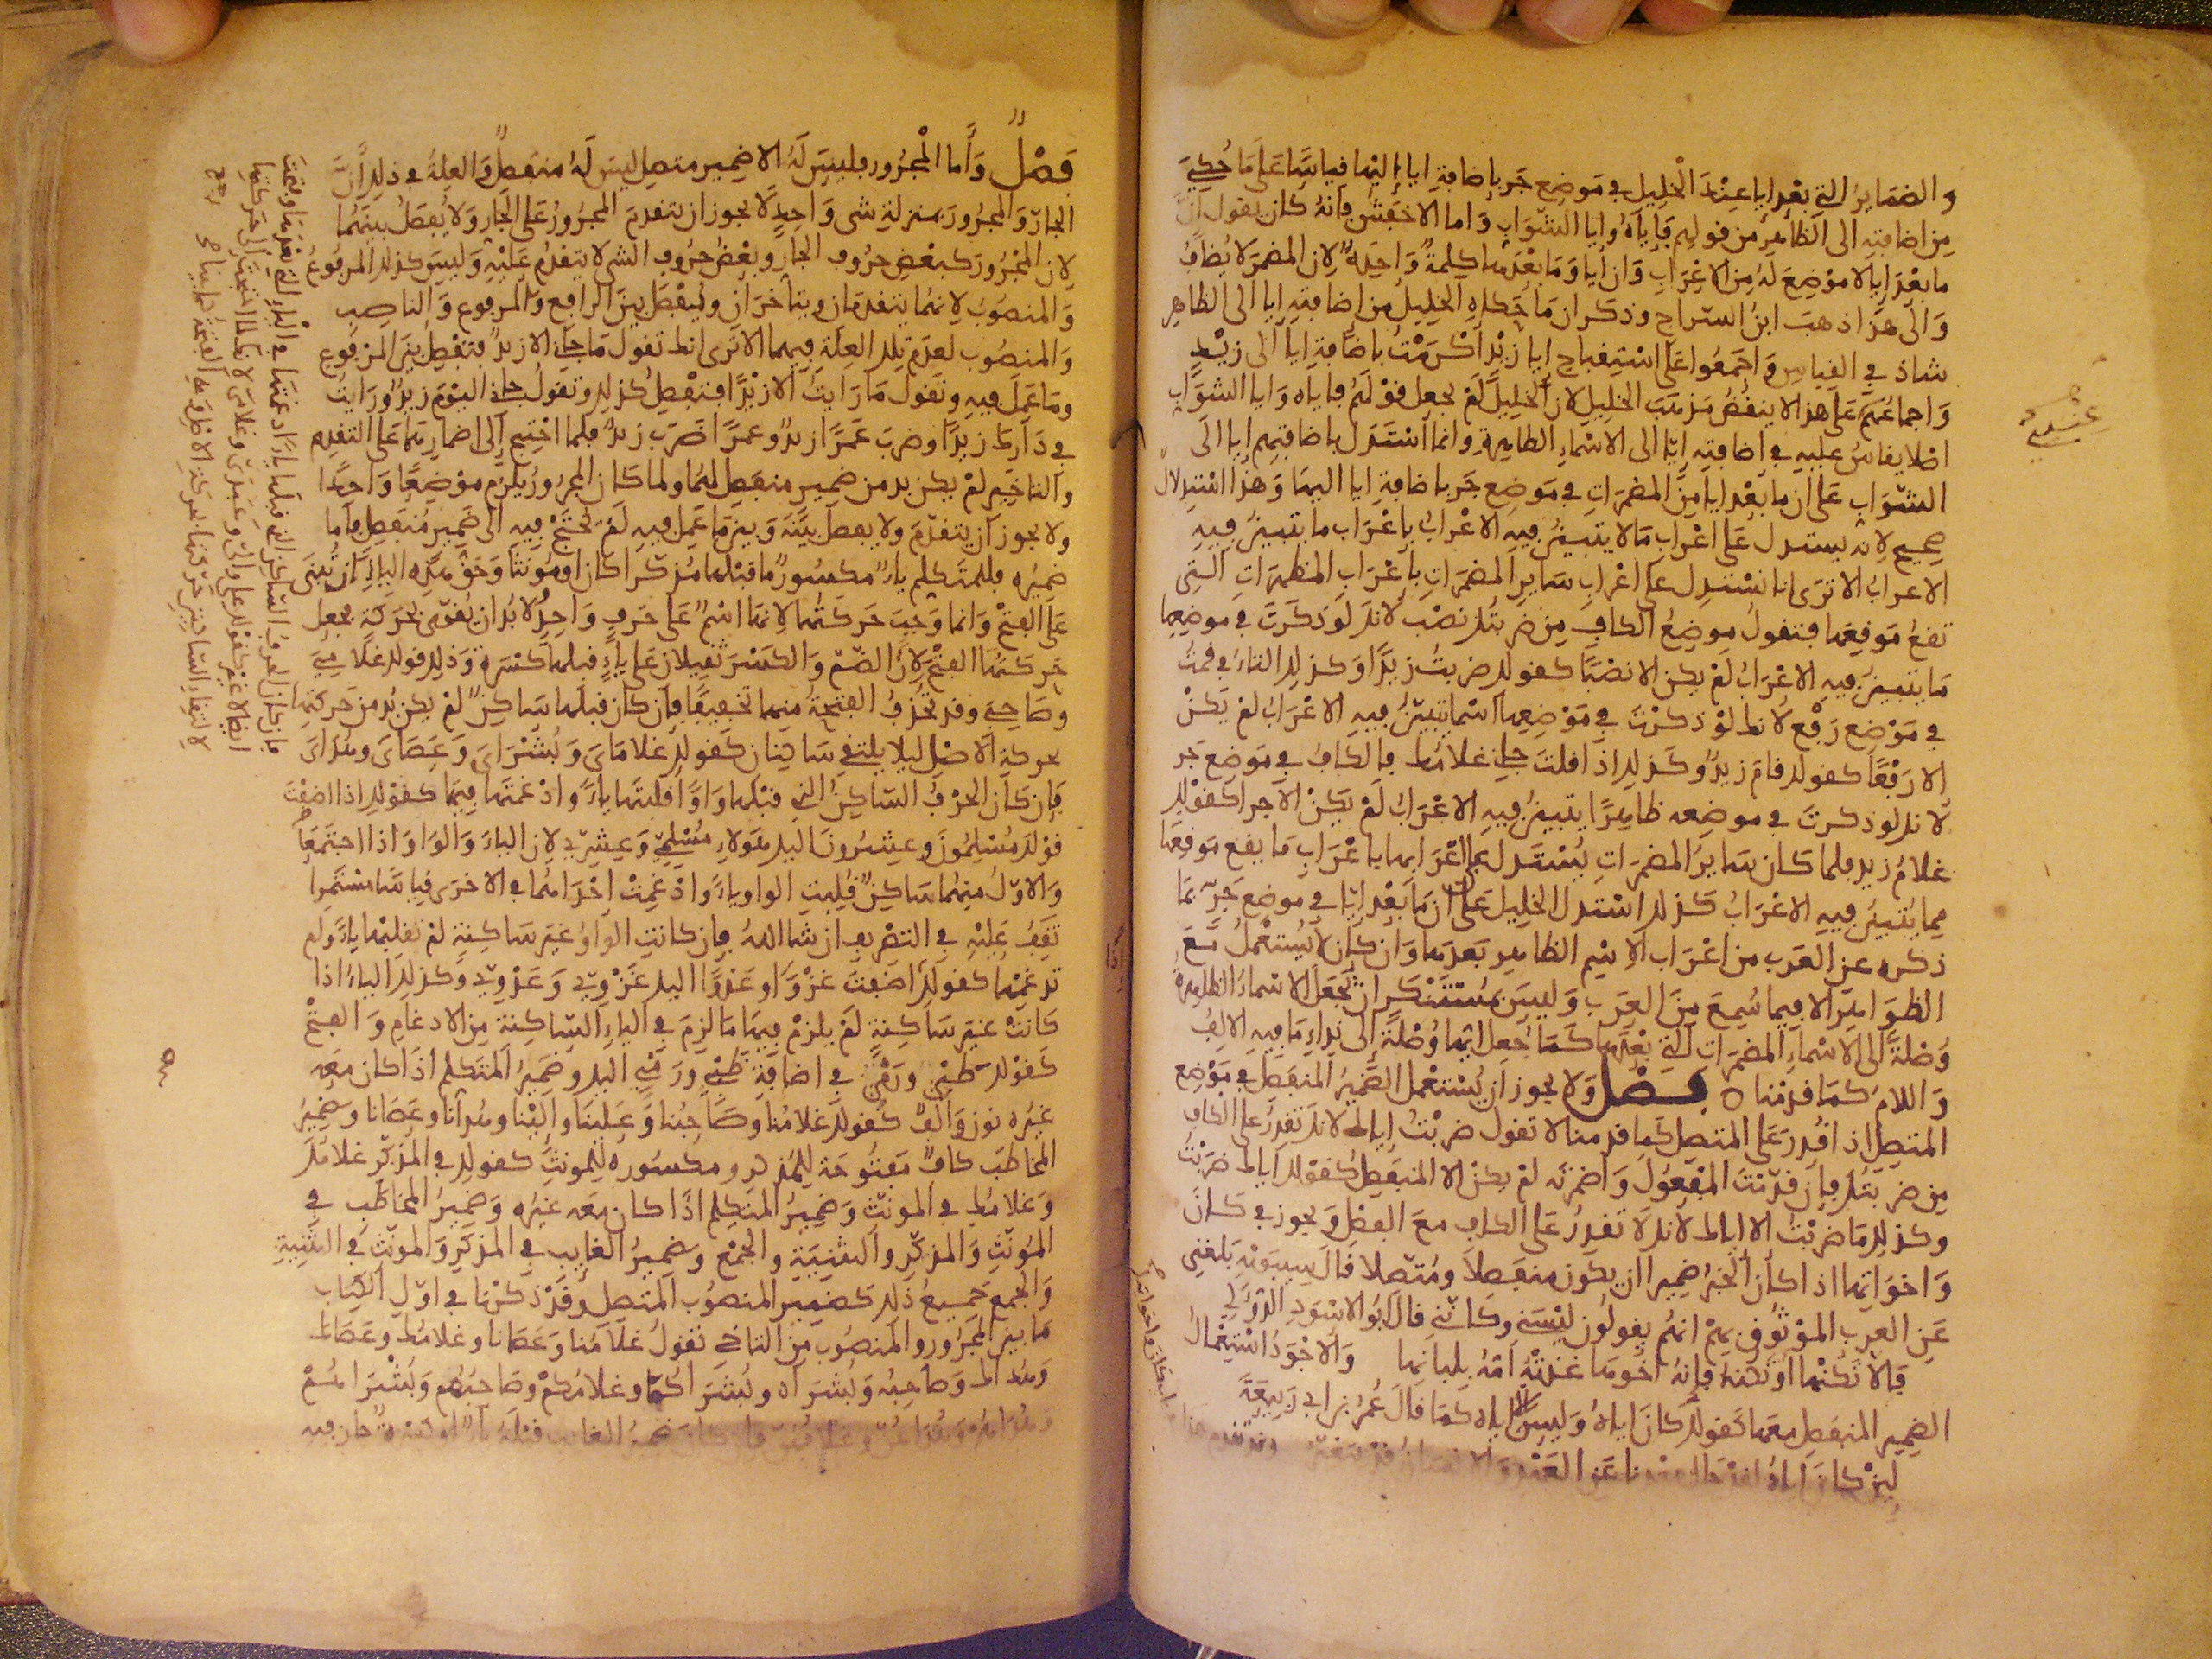 والضمايرُ التي بعد إيا عند الخليل في موضع جر بإضافة إيا إليها قياسًا على ما حُكِيَ
من إضافته إلى الظاهر من قولهم فإياه وإيا الشوابِّ وأما الأخفش فإنه كان يقول إنَّ
ما بعد إيا لا موضع له من الإعراب وأن إيا وما بعدها كلمة واحدة لأن المضمر لا يُضافُ
وإلى هذا ذهب ابن السراج وذكر أن ما حكاه الخليل من إضافته إيا إلى الظاهر
شاذ في القياس وأجمعوا على استقباح إيا زيد أكرمتُ بإضافة إيا إلى زيد
وإجماعهم على هذا لا ينقض مذهب الخليل لأن الخليل لم يجعل قولهم فإياه وإيا الشوابِّ
أصلا يقاس عليه في إضافته إيا إلى الأسماء الظاهرة وإنما استدل بإضافتهم إيا إلى
الشوابِّ على أن ما بعد إيا من المضمرات في موضع جر بإضافة إيا إليها وهذا استدلالٌ
صحيح لأنه يستدل على إعراب ما لا يتبين فيه الإعراب بإعراب ما يتبين فيه
الإعراب ألا ترى أنا نستدل على إعراب ساير المضمرات بإعراب المظهرات التي
تقع موقعها فتقول موضع الكاف من ضربتك نصب لأنك لو ذكرت في موضعها
ما يتبين فيه الإعراب لم يكن إلا نصبًا كقولك ضربت زيدًا وكذلك التاء في قمتُ
في موضع رفع لأنك لو ذكرت في موضعها اسما يتبين فيه الإعراب لم يكن
إلا رفعًا كقولك قام زيد وكذلك إذا قلت جاني غلامك فالكاف في موضع جر
لأنك لو ذكرت في موضعه ظاهرًا يتبين فيه الإعراب لم يكن إلا جرا كقولك
غلام زيد فلما كان ساير المضمرات يُستدل على إعرابها بإعراب ما يقع موقعها
مما يتبين فيه الإعراب كذلك استدل الخليل على أن ما بعد إيا في موضع جر بما
ذكره عن العرب من إعراب الاسم الظاهر بعدها وإن كان لا يُستعمل مع
الظواهر إلا فيما سُمِعَ من العرب وليس بمستنكر أن تجعل الأسماء الظاهرة
وُصلة إلى الأسماء المضمرات التي بعدها كما جُعِل أيها وُصلة إلى نداء ما فيه الألف
واللام كما قدمنا ٥ فصل ولا يجوز أن يُستعمل الضمير المنفصل في موضع
المتصل إذا قُدِر على المتصل كما قدمنا لا تقول ضربتُ إياك لأنك تقدر على الكاف
من ضربتك فإن قدمت المفعول وأضمرته لم يكن إلا المنفصل كقولك إياك ضربتُ
وكذلك ما ضربت إلا إياك لأنك لا تقدر على الكاف مع الفصل ويجوز في كان
وأخواتها إذا كان الخبر ضميرا أن يكون منفصلا ومتصلا قال سيبويه بلغني
عن العرب الموثوق بهم أنهم يقولون ليسني وكانني قال أبو الأسود الدؤلي
فإلا تكنها أو تكنه فإنه أخوها غذته أمه بلبانها والأجود استعمال
الضمير المنفصل معها كقولك كان إياه وليس إياه كما قال عمر بن أبي ربيعة
لين كان إياه لقد حال بعدنا عن العهد والإنسان قد يتغير
فصل وأما المجرور فليس له إلا ضمير متصل ليس له منفصل والعلة في ذلك أنَّ
الجار والمجرور بمنزلة شي واحد لا يجوز أن يتقدم المجرور على الجار ولا يُفصل بينهما
لأن المجرور كبعض حروف الجار وبعض حروف الشي لا يتقدم عليه وليس كذلك المرفوعُ
والمنصوب لأنهما يتقدمان ويتأخران ويُفصل بين الرافع والمرفوع والناصب
والمنصوب لعدم تلك العلة فيهما ألا ترى أنك تقول ما جاني إلا زيد فتفصل بين المرفوع
وما عمل فيه وتقول ما رأيت إلا زيدًا فتفصل كذلك وتقول جاني اليوم زيد ورأيت
في دارك زيدًا وضرب عمرًا زيد وعمرًا ضرب زيد فلما احتيج إلى إضمارهما على التقديم
والتاخير لم يكن بد من ضمير منفصل لهما ولما كان المجرور يلزم موضعًا واحدًا
ولا يجوز أن يتقدم ولا يفصل بينه وبين ما عمل فيه لم يحتج فيه إلى ضمير منفصل فأما
ضميره فللمتكلم ياء مكسور ما قبلها مذكرا كان أو مونثا وحق هذه الياء أن تُبنى
على الفتح وإنما وجب حركتها لأنها اسم على حرف واحد لا بد أن يُقوّى بحركة فجعل
حركتها الفتح لأن الضم والكسر ثقيلان على ياء قبلها كسرة وذلك قولك غلامي
وصاحبي وقد تحذف الفتحة منها تخفيفًا فإن كان قبلها ساكن لم يكن بد من حركتها
بحركة الأصل ليلا يلتقي ساكنان كقولك غلاماي وبشراي وعصاي وهداي
فإن كان الحرف الساكن الذي قبلها واوًا قلبتها ياء وأدغمتها فيها كقولك إذا أضفت
قولك مسلمون وعشرون إليك هؤلاء مسلميّ وعشريّ لأن الياء والواو إذا اجتمعا
والأول منهما ساكن قُلبت الواو ياء وأدغمت إحداهما في الأخرى قياسا مستمرا
تقف عليه في التصريف إن شا الله فإن كانت الواو غير ساكنة لم تقلبها ياء ولم
تدغمها كقولك إذا أضفت غزوًا أو عدوًا إليك غزوي وعدوي وكذلك الياء إذا
كانت غير ساكنة لم يلزم فيها ما لزم في الياء الساكنة من الإدغام والفتح
كقولك ظبيي ورميي في إضافة ظبي ورمي إليك وضمير المتكلم إذا كان معه
غيره نون وألف كقولك غلامنا وصاحبنا وعلينا وإلينا وهدانا وعصانا وضمير
المخاطب كاف مفتوحة للمذكر ومكسورة للمونث كقولك في المذكر غلامك
وغلامك في المونث وضمير المتكلم إذا كان معه غيره وضمير المخاطب في
المونث والمذكر والتثنية والجمع وضمير الغايب في المذكر والمونث في التثنية
والجمع جميع ذلك كضمير المنصوب المتصل وقد ذكرنا في أول الكتاب
ما بين المجرور والمنصوب من التاخي تقول غلامنا وعصانا وغلامك وعصاك
وهداك وصاحبه وبشراه وبشراكما وغلامكم وصاحبهم وبشراهم